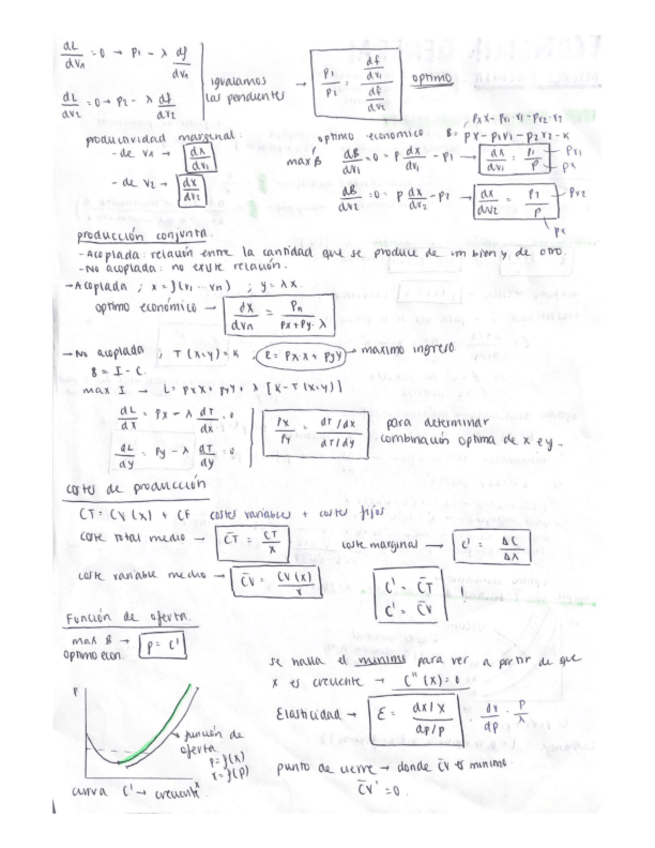 dL/dv1 = 0 → P1 - λ df/dv1
dL/dv2 = 0 → P2 - λ df/dv2
igualamos las pendientes → P1/P2 = (df/dv1)/(df/dv2) optimo
productividad marginal:
- de v1 → dx/dv1
- de v2 → dx/dv2
optimo economico B = PX - P1V1 - P2V2 - K
Pxx - Pv1·V1 - Pv2·V2
max B dB/dv1 = 0 = P dx/dv1 - P1 → dx/dv1 = P1/P → Pv1
Px
dB/dv2 = 0 = P dx/dv2 - P2 → dx/dv2 = P2/P → Pv2
Px
producción conjunta.
- Acoplada: relación entre la cantidad que se produce de un bien y de otro.
- No acoplada: no existe relación.
→ Acoplada ; x = f(v1 ... vn) ; y = λx.
optimo económico → dx/dvn = Pn/(Px + Py · λ)
→ No acoplada ; T(x,y) = K. I = Pxx + Pyy → maximo ingreso.
B = I - C.
max I → L = Pxx + Pyy + λ [K - T(x,y)]
dL/dx = Px - λ dT/dx = 0
dL/dy = Py - λ dT/dy = 0
Px/Py = (dT/dx)/(dT/dy) para determinar combinación optima de x e y.
costes de producción
CT = CV(x) + CF costes variables + costes fijos
coste total medio → C̄T = CT/x coste marginal → C' = ΔC/Δx
coste variable medio → C̄V = CV(x)/x
C' = C̄T
C' = C̄V !
Función de oferta.
max B → P = C'
optimo econ.
se halla el minimo para ver a partir de que
x es creciente → C''(x) = 0
Elasticidad → Ɛ = (dx/x)/(dp/p) = dx/dp · P/x
P
función de oferta
P = f(x)
x = f(P)
x
curva C' → creciente
punto de cierre → donde C̄V es minimo.
C̄V' = 0.